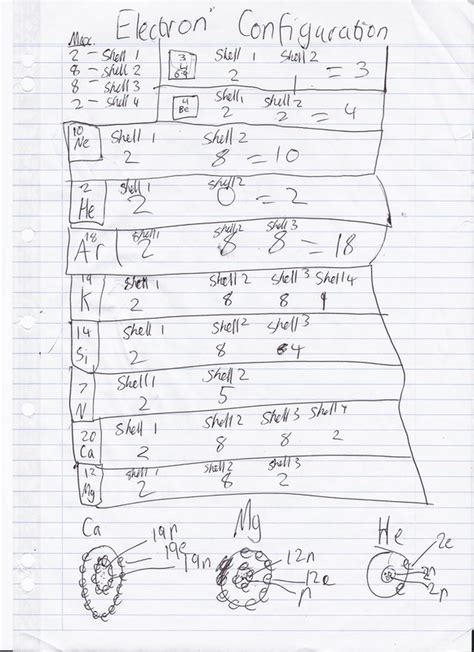 Electron Configuration
Max.
2 - Shell 1
8 - Shell 2
8 - Shell 3
2 - Shell 4
3 Shell 1 Shell 2
Li 2 1 = 3
4 Shell 1 Shell 2
Be 2 2 = 4
10 Shell 1 Shell 2
Ne 2 8 = 10
2 Shell 1 Shell 2
He 2 0 = 2
18 Shell 1 Shell 2 Shell 3
Ar 2 8 8 = 18
19 Shell 1 Shell 2 Shell 3 Shell 4
K 2 8 8 1
14 Shell 1 Shell 2 Shell 3
Si 2 8 4
7 Shell 1 Shell 2
N 2 5
20 Shell 1 Shell 2 Shell 3 Shell 4
Ca 2 8 8 2
12 Shell 1 Shell 2 Shell 3
Mg 2 8 2
Ca Mg He
19n
19e
19n
12n
12e
n
2e
2n
2n